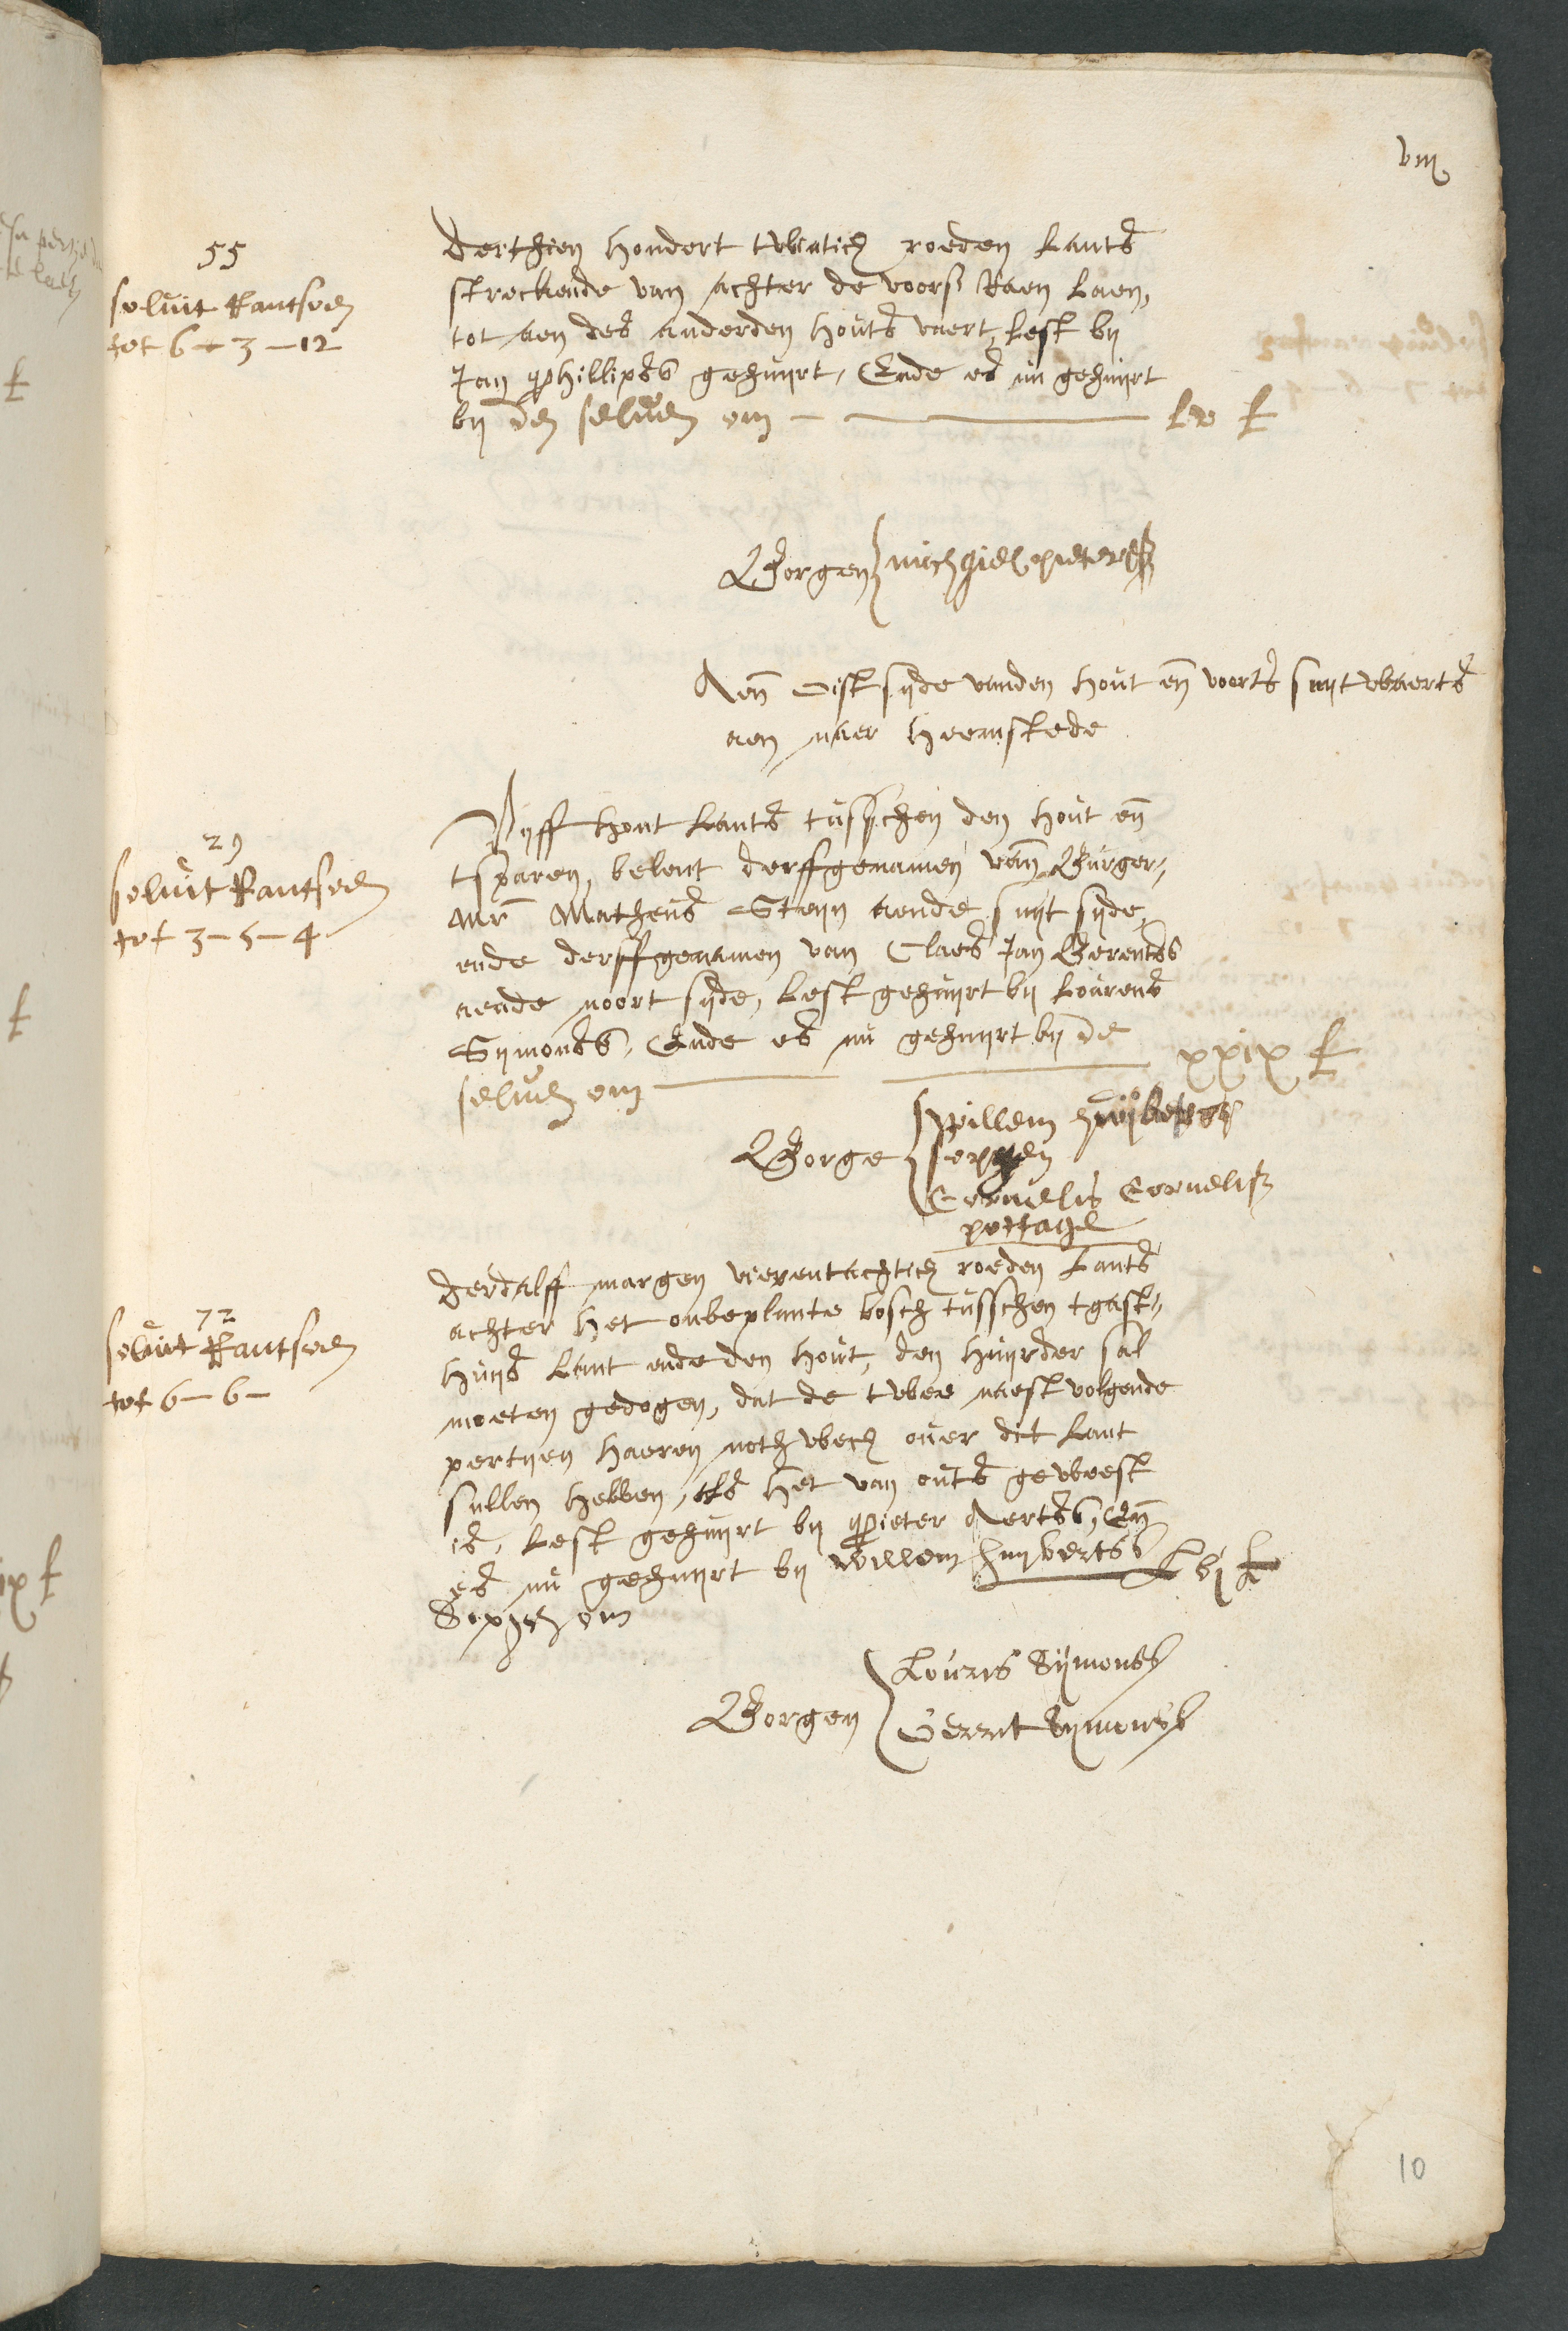 viij
55
solvit Rantsoen
tot 6-3-12
Derthien hondert twintich roeden Lants
streckende van achter de voors Laen,
tot aen des anderden houts vaert, Lest bij
Jan Phillipss gehuijrt, Ende es nu gehuijrt
bij den selven om — lv £
Borgen michgiel pieterss
Aen oistsijde vanden hout en voorts suijtwaerts
aen naer heemstede
29
solvit Rantsoen
tot 3-5-4
Vijff hont Lants tusschen den hout en
tsparen, belent derffgenamen van Burger-
mr Matheus Steijn aende suijt sijde,
ende derffgenamen van Claes Jan Gerentss
aende noort sijde, Lest gehuijrt bij Lourens
Sijmonss, Ende es nu gehuijrt bij de
selven om — xxix £
Borge willem
Cornelis Cornelisz
pottagie
72
solvit Rantsoen
tot 6-6-
Derdalff margen vierentachtich roeden Lants
achter het onbeplante bosch tusschen tgast-
huijs Lant ende den hout, den huijrder sal
moeten gedogen, dat de twee naest volgende
pertijen haeren noth wech over dit Lant
sullen hebben, als het van outs geweest
is, Lest gehuijrt bij Pieter Aertss, En
es nu gehuijrt bij Willem huijbertss Lvj £
om
Borgen Louris Sijmonss
Gerrit Sijmonss
10